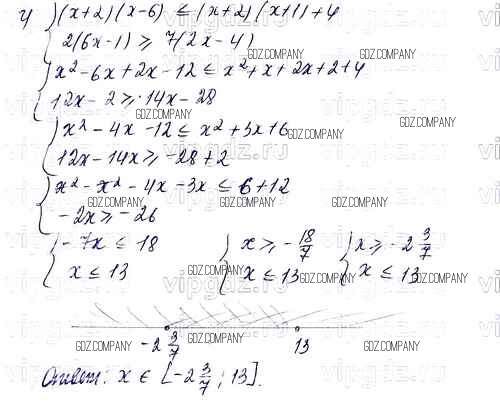 4) { (x+2)(x-6) ≤ (x+2)(x+1)+4
2(6x-1) ≥ 7(2x-4)
{ x²-6x+2x-12 ≤ x²+x+2x+2+4
12x-2 ≥ 14x-28
{ x²-4x-12 ≤ x²+3x+6
12x-14x ≥ -28+2
{ x²-x²-4x-3x ≤ 6+12
-2x ≥ -26
{ -7x ≤ 18 { x ≥ -18/7 { x ≥ -2 3/7
x ≤ 13 x ≤ 13 x ≤ 13
-2 3/7 13
Ответ: x ∈ [-2 3/7; 13].
GDZ.COMPANY
vipgdz.ru